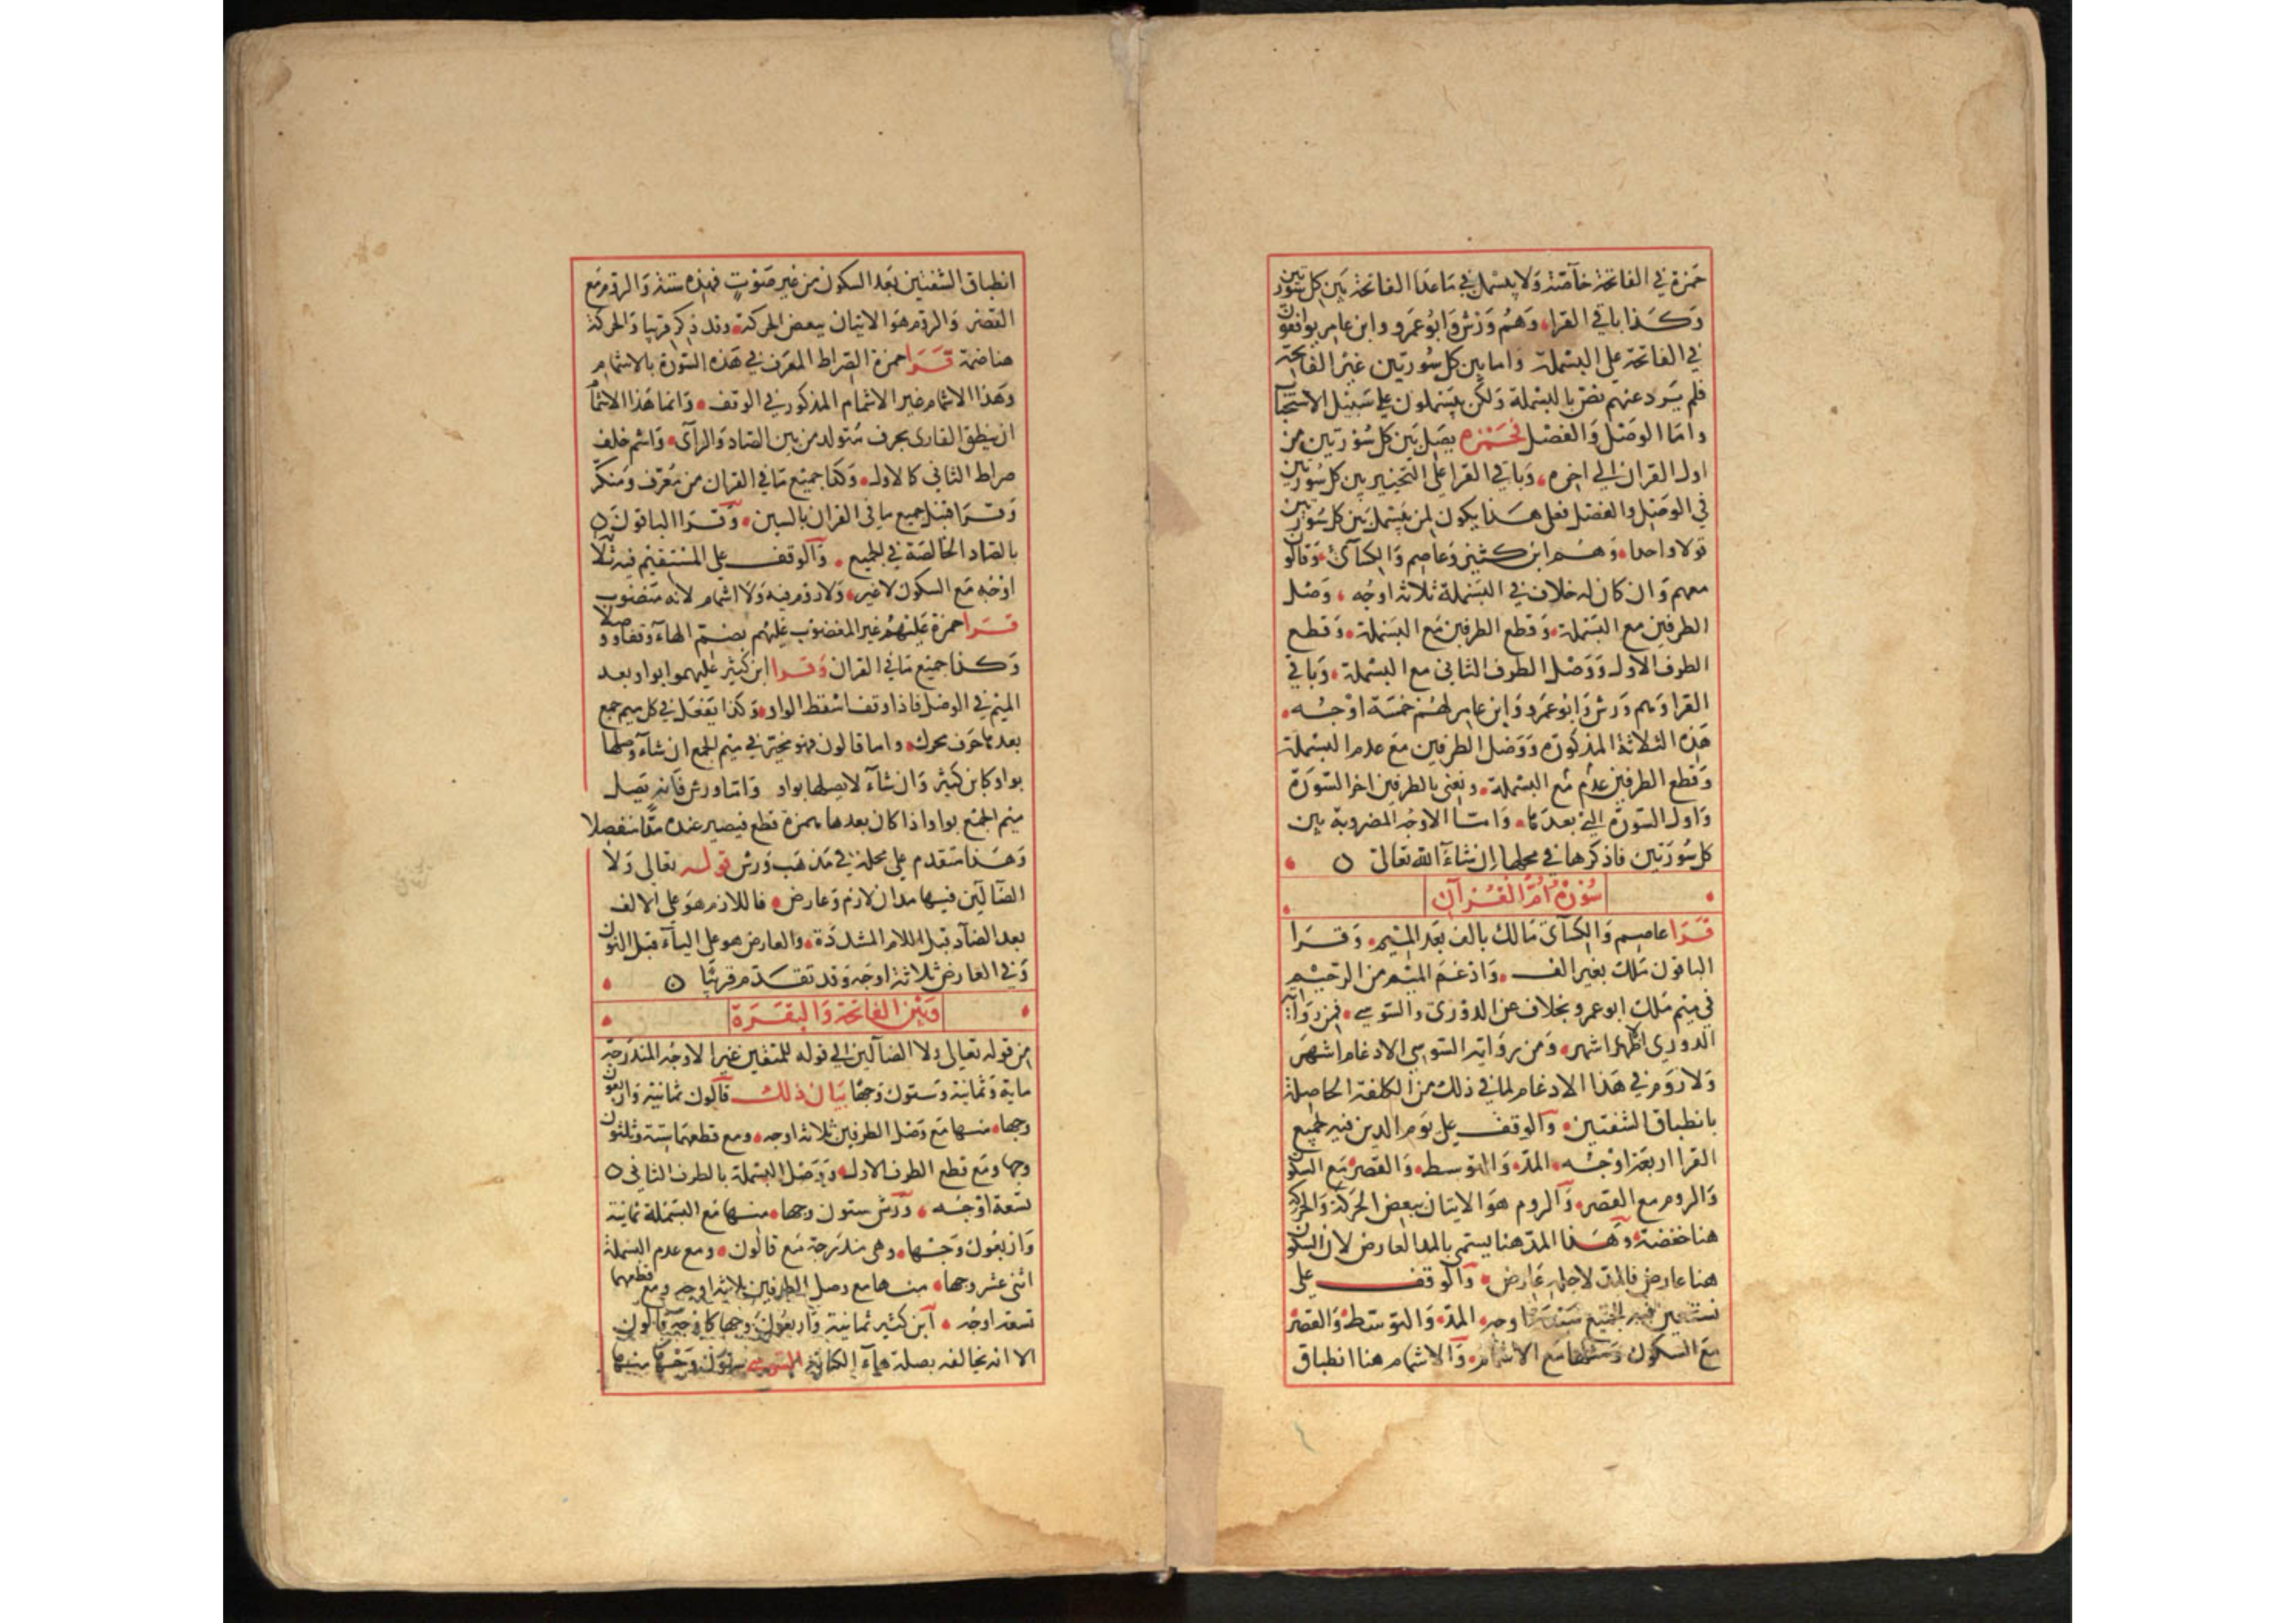 حمزة في الفاتحة خاصة ولا يبسمل في ما عدا الفاتحة بين كل سورتين
وكذا باقي القرا وهم ورش وابو عمرو وابن عامر يوافقون
في الفاتحة على البسملة واما بين كل سورتين غير الفاتحة
فلم يرد عنهم نص بالبسملة ولكن يبسملون على سبيل الاستحبا
واما الوصل والفصل فحمزه يصل بين كل سورتين من
اول القران الي اخره وباقي القرا على التخيير بين كل سورتين
في الوصل والفصل فعلى هذا يكون لمن يبسمل بين كل سورتين
قولا واحدا وهم ابن كثير وعاصم والكسآئ وقالون
معهم وان كان له خلاف في البسملة ثلاثة اوجه وصل
الطرفين مع البسملة وقطع الطرفين مع البسملة وقطع
الطرف الاول ووصل الطرف الثاني مع البسملة وباقي
القرا وهم ورش وابو عمرو وابن عامر لهم خمسة اوجه
هذه الثلاثة المذكورة ووصل الطرفين مع عدم البسملة
وقطع الطرفين مع عدم البسملة ونعني بالطرفين اخر السورة
واول السورة التي بعدها واما الاوجه المضروبة بين
كل سورتين فاذكرها في محلها ان شاء الله تعالى ٥
سورة ام القرآن
قرا عاصم والكسآئ مالك بالف بعد الميم وقرا
الباقون ملك بغير الف وادغم الميم من الرحيم
في ميم ملك ابو عمرو بخلاف عن الدوري والسوسي فمن رواية
الدوري الاظهار اشهر ومن رواية السوسي الادغام اشهر
ولا روم في هذا الادغام لما في ذلك من الكلفة الحاصلة
بانطباق الشفتين والوقف على يوم الدين فيه لجميع
القرا اربعة اوجه المد والتوسط والقصر مع السكون
والروم مع القصر والروم هو الاتيان ببعض الحركة والحركة
هنا خفضة وهذا المد هنا يسمى بالمد العارض لان السكون
هنا عارض فالمد لاجله عارض والوقف على
نستعين فيه للجميع سبعة اوجه المد والتوسط والقصر
مع السكون ومثلها مع الاشمام والاشمام هنا انطباق
انطباق الشفتين بعد السكون من غير صوت فهذه ستة والروم مع
القصر والروم هو الاتيان ببعض الحركة وقد ذكر قريبا والحركة
هنا ضمة قرا حمزة الصراط المعرف في هذه السورة بالاشمام
وهذا الاشمام غير الاشمام المذكور في الوقف وانما هذا الاشما
ان ينطق القارى بحرف متولد من بين الصاد والزآى واشم خلف
صراط الثاني كالاول وكذا جميع ما في القران من معرف ومنكر
وقرا قنبل جميع ما في القران بالسين وقرا الباقون ٥
بالصاد الخالصة في الجميع والوقف على المستقيم فيه ثلاثة
اوجه مع السكون لا غير ولا روم فيه ولا اشمام لانه منصوب
قرا حمزة عليهم غير المغضوب عليهم بضم الهآء وقفا ووصلا
وكذا جميع ما في القران وقرا ابن كثير عليهموا بواو بعد
الميم في الوصل فاذا وقف اسقط الواو وكذا يفعل في كل ميم جمع
بعدها حرف محرك واما قالون فهو مخير في ميم الجمع ان شآء وصلها
بواو كابن كثير وان شآء لا يصلها بواو واما ورش فانه يصل
ميم الجمع بواو اذا كان بعدها همزة قطع فيصير عنده مدا منفصلا
وهذا متقدم على محله في مذهب ورش قوله تعالى ولا
الضآلين فيها مدان لازم وعارض فاللازم هو على الالف
بعد الضاد قبل اللام المشددة والعارض هو على اليآء قبل النون
وفي العارض ثلاثة اوجه وقد تقدم قريبا ٥
وبين الفاتحة والبقرة
من قوله تعالى ولا الضآلين الى قوله للمتقين غير الاوجه المندرجة
ماية وثمانية وستون وجها بيان ذلك قالون ثمانية واربعون
وجها منها مع وصل الطرفين ثلاثة اوجه ومع قطعهما ستة وثلثون
وجها ومع قطع الطرف الاول ووصل البسملة بالطرف الثاني ٥
تسعة اوجه ورش ستون وجها منها مع البسملة ثمانية
واربعون وجها وهي مندرجة مع قالون ومع عدم البسملة
اثنى عشر وجها منها مع وصل الطرفين ثلاثة اوجه ومع قطعهما
تسعة اوجه ابن كثير ثمانية واربعون وجها كاوجه قالون
الا انه يخالفه بصلة هآء الكناية السوسي ستون وجها منها